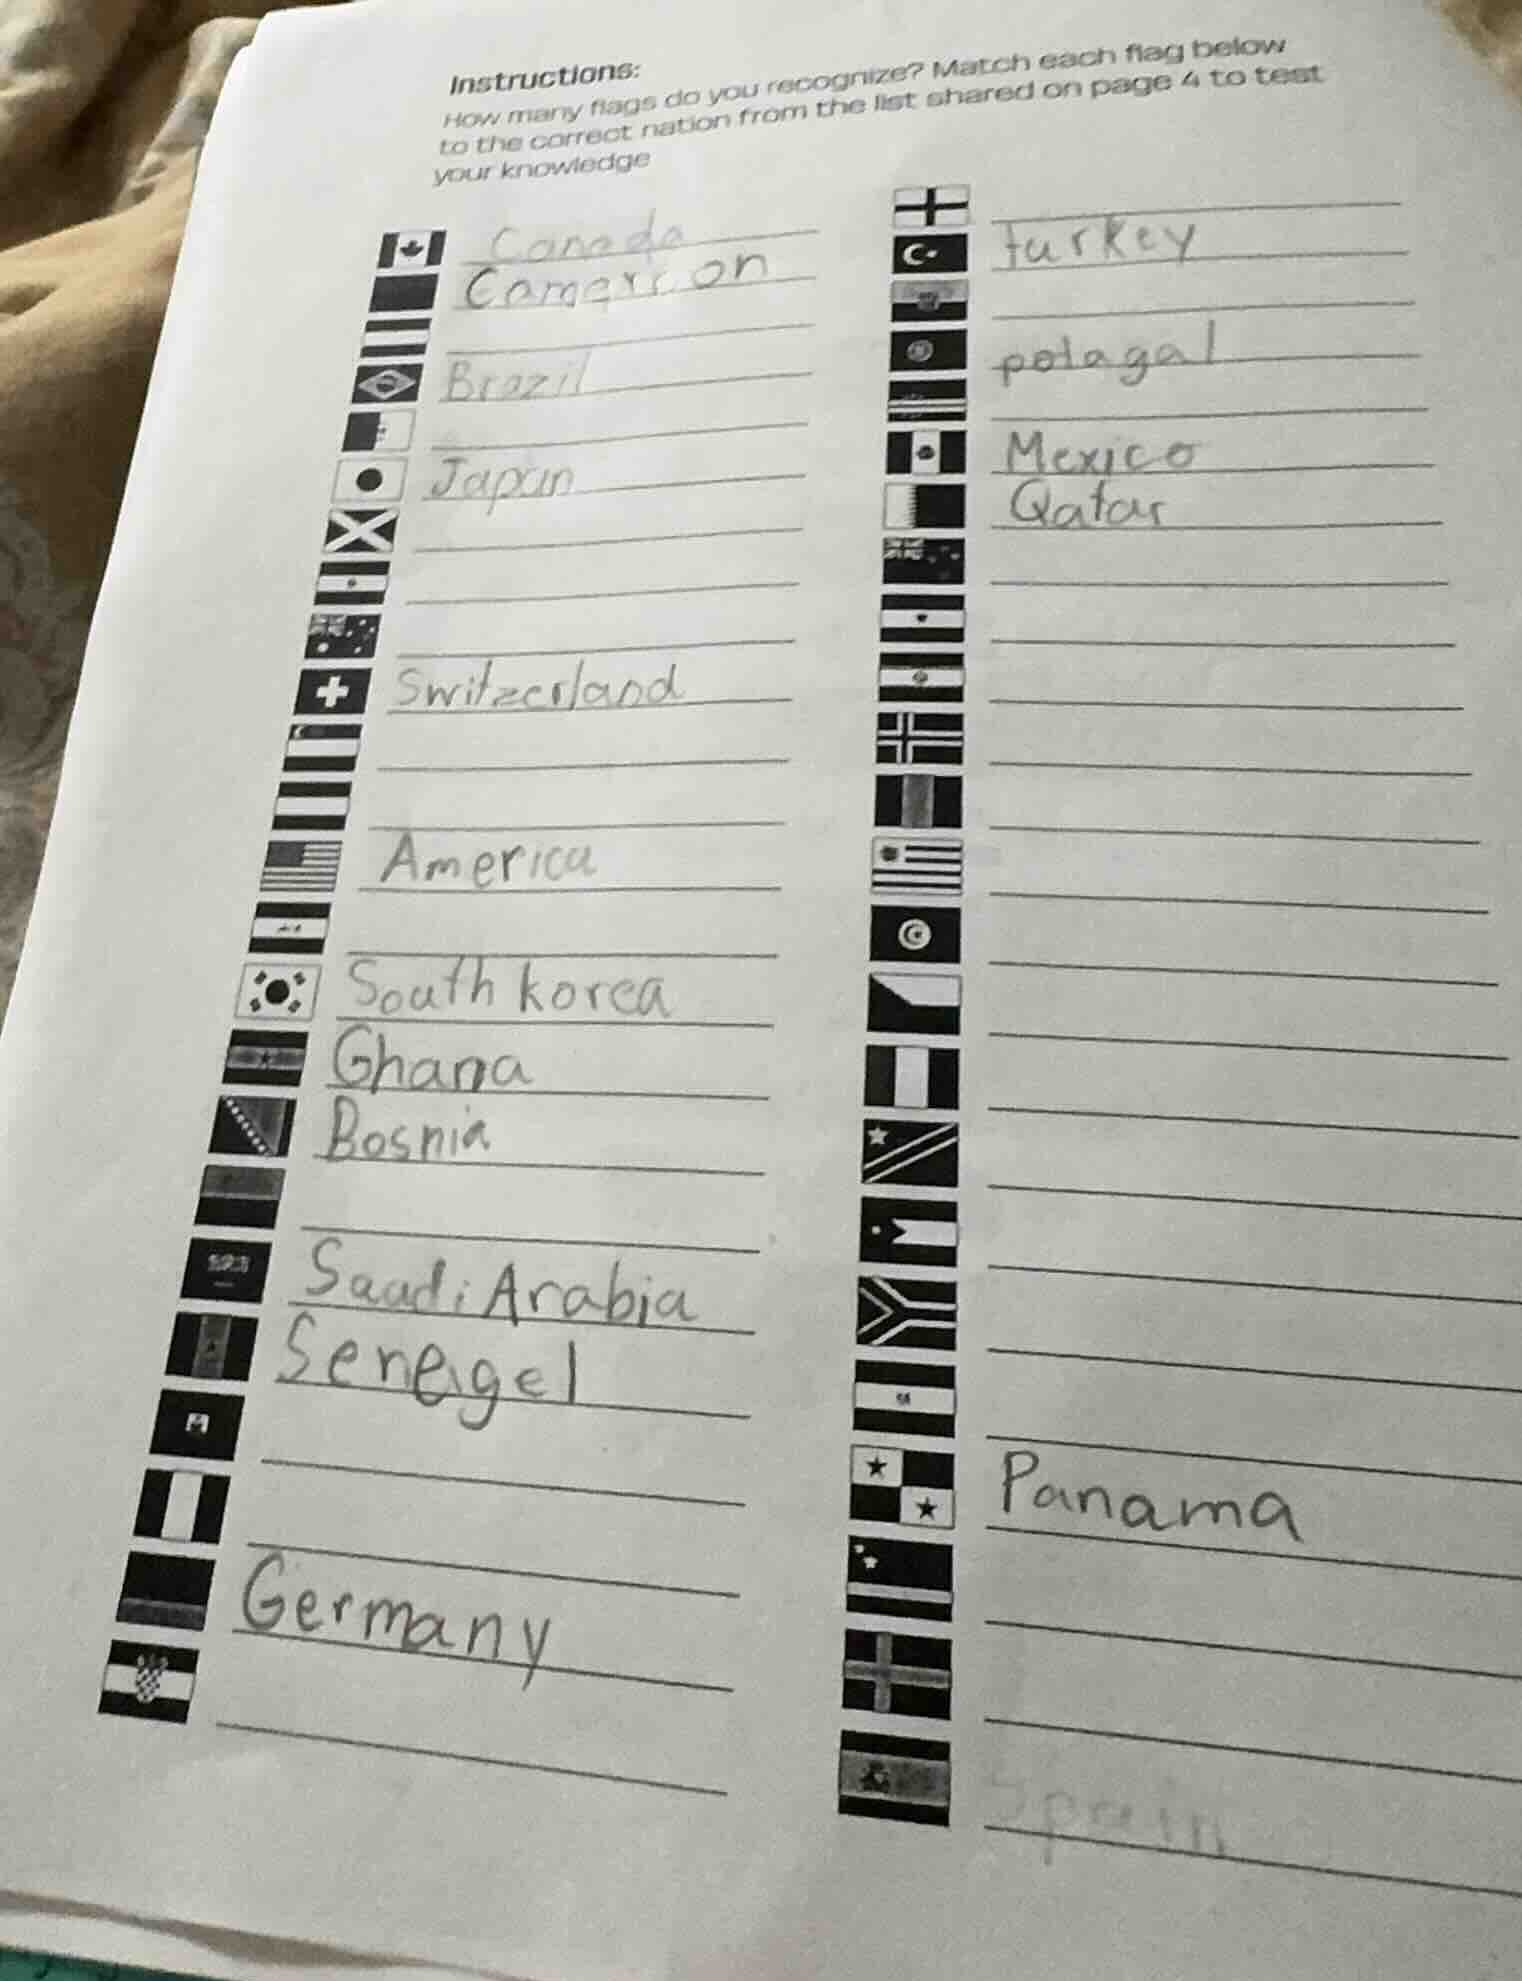 Instructions:
How many flags do you recognize? Match each flag below
to the correct nation from the list shared on page 4 to test
your knowledge
Canada
Camerron
Brazil
Japan
Switzerland
America
South korea
Ghana
Bosnia
Saudi Arabia
Senegel
Germany
turkey
potagal
Mexico
Qatar
Panama
Spain